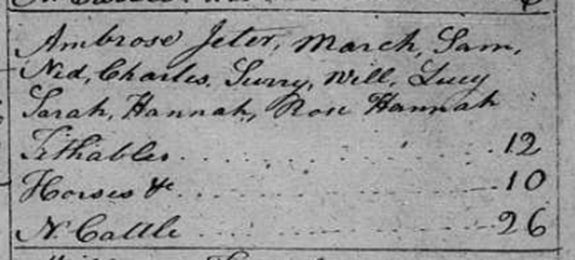 Ambrose Jeter, March, Sam,
Ned, Charles, Surry, Will, Lucy
Sarah, Hannah, Rose Hannah
Tithables 12
Horses &c 10
N. Cattle 26